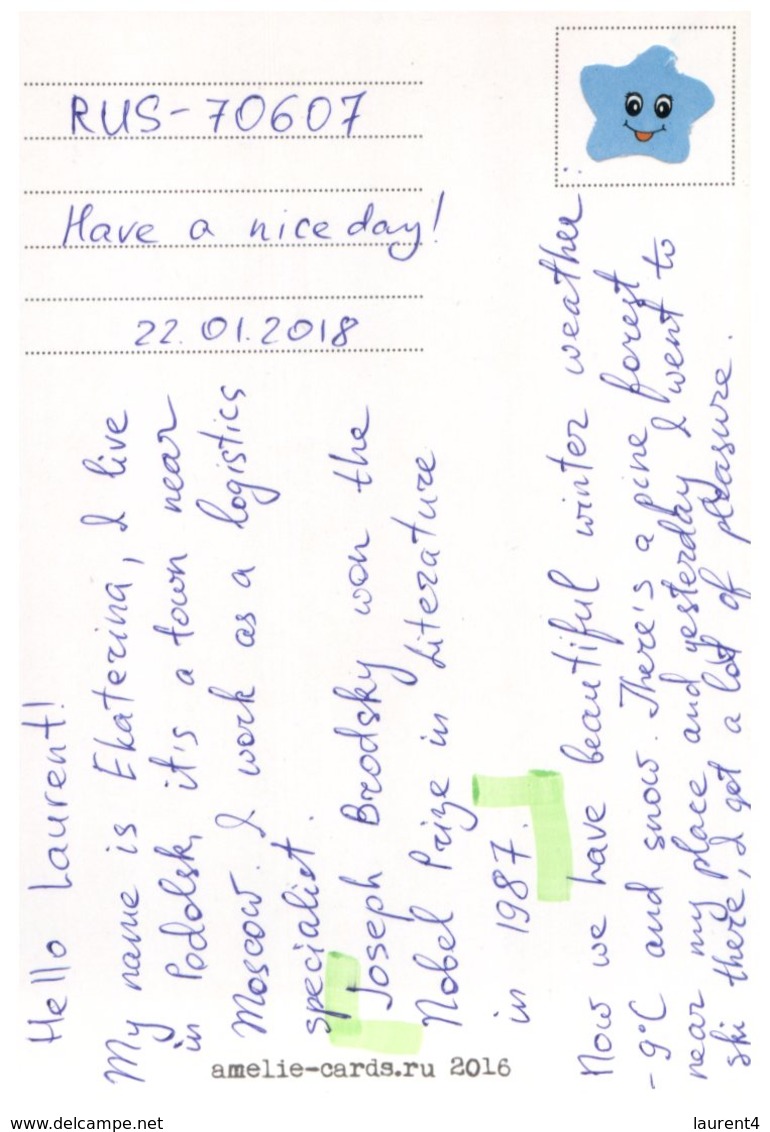 RUS-70607
Have a nice day!
22.01.2018
Hello Laurent!
My name is Ekaterina, I live
in Podolsk, it's a town near
Moscow. I work as a logistics
specialist.
Joseph Brodsky won the
Nobel Prize in Literature
in 1987.
Now we have beautiful winter weather:
-9°C and snow. There's a pine forest
near my place and yesterday I went to
ski there, I got a lot of pleasure.
amelie-cards.ru 2016
www.delcampe.net
laurent4